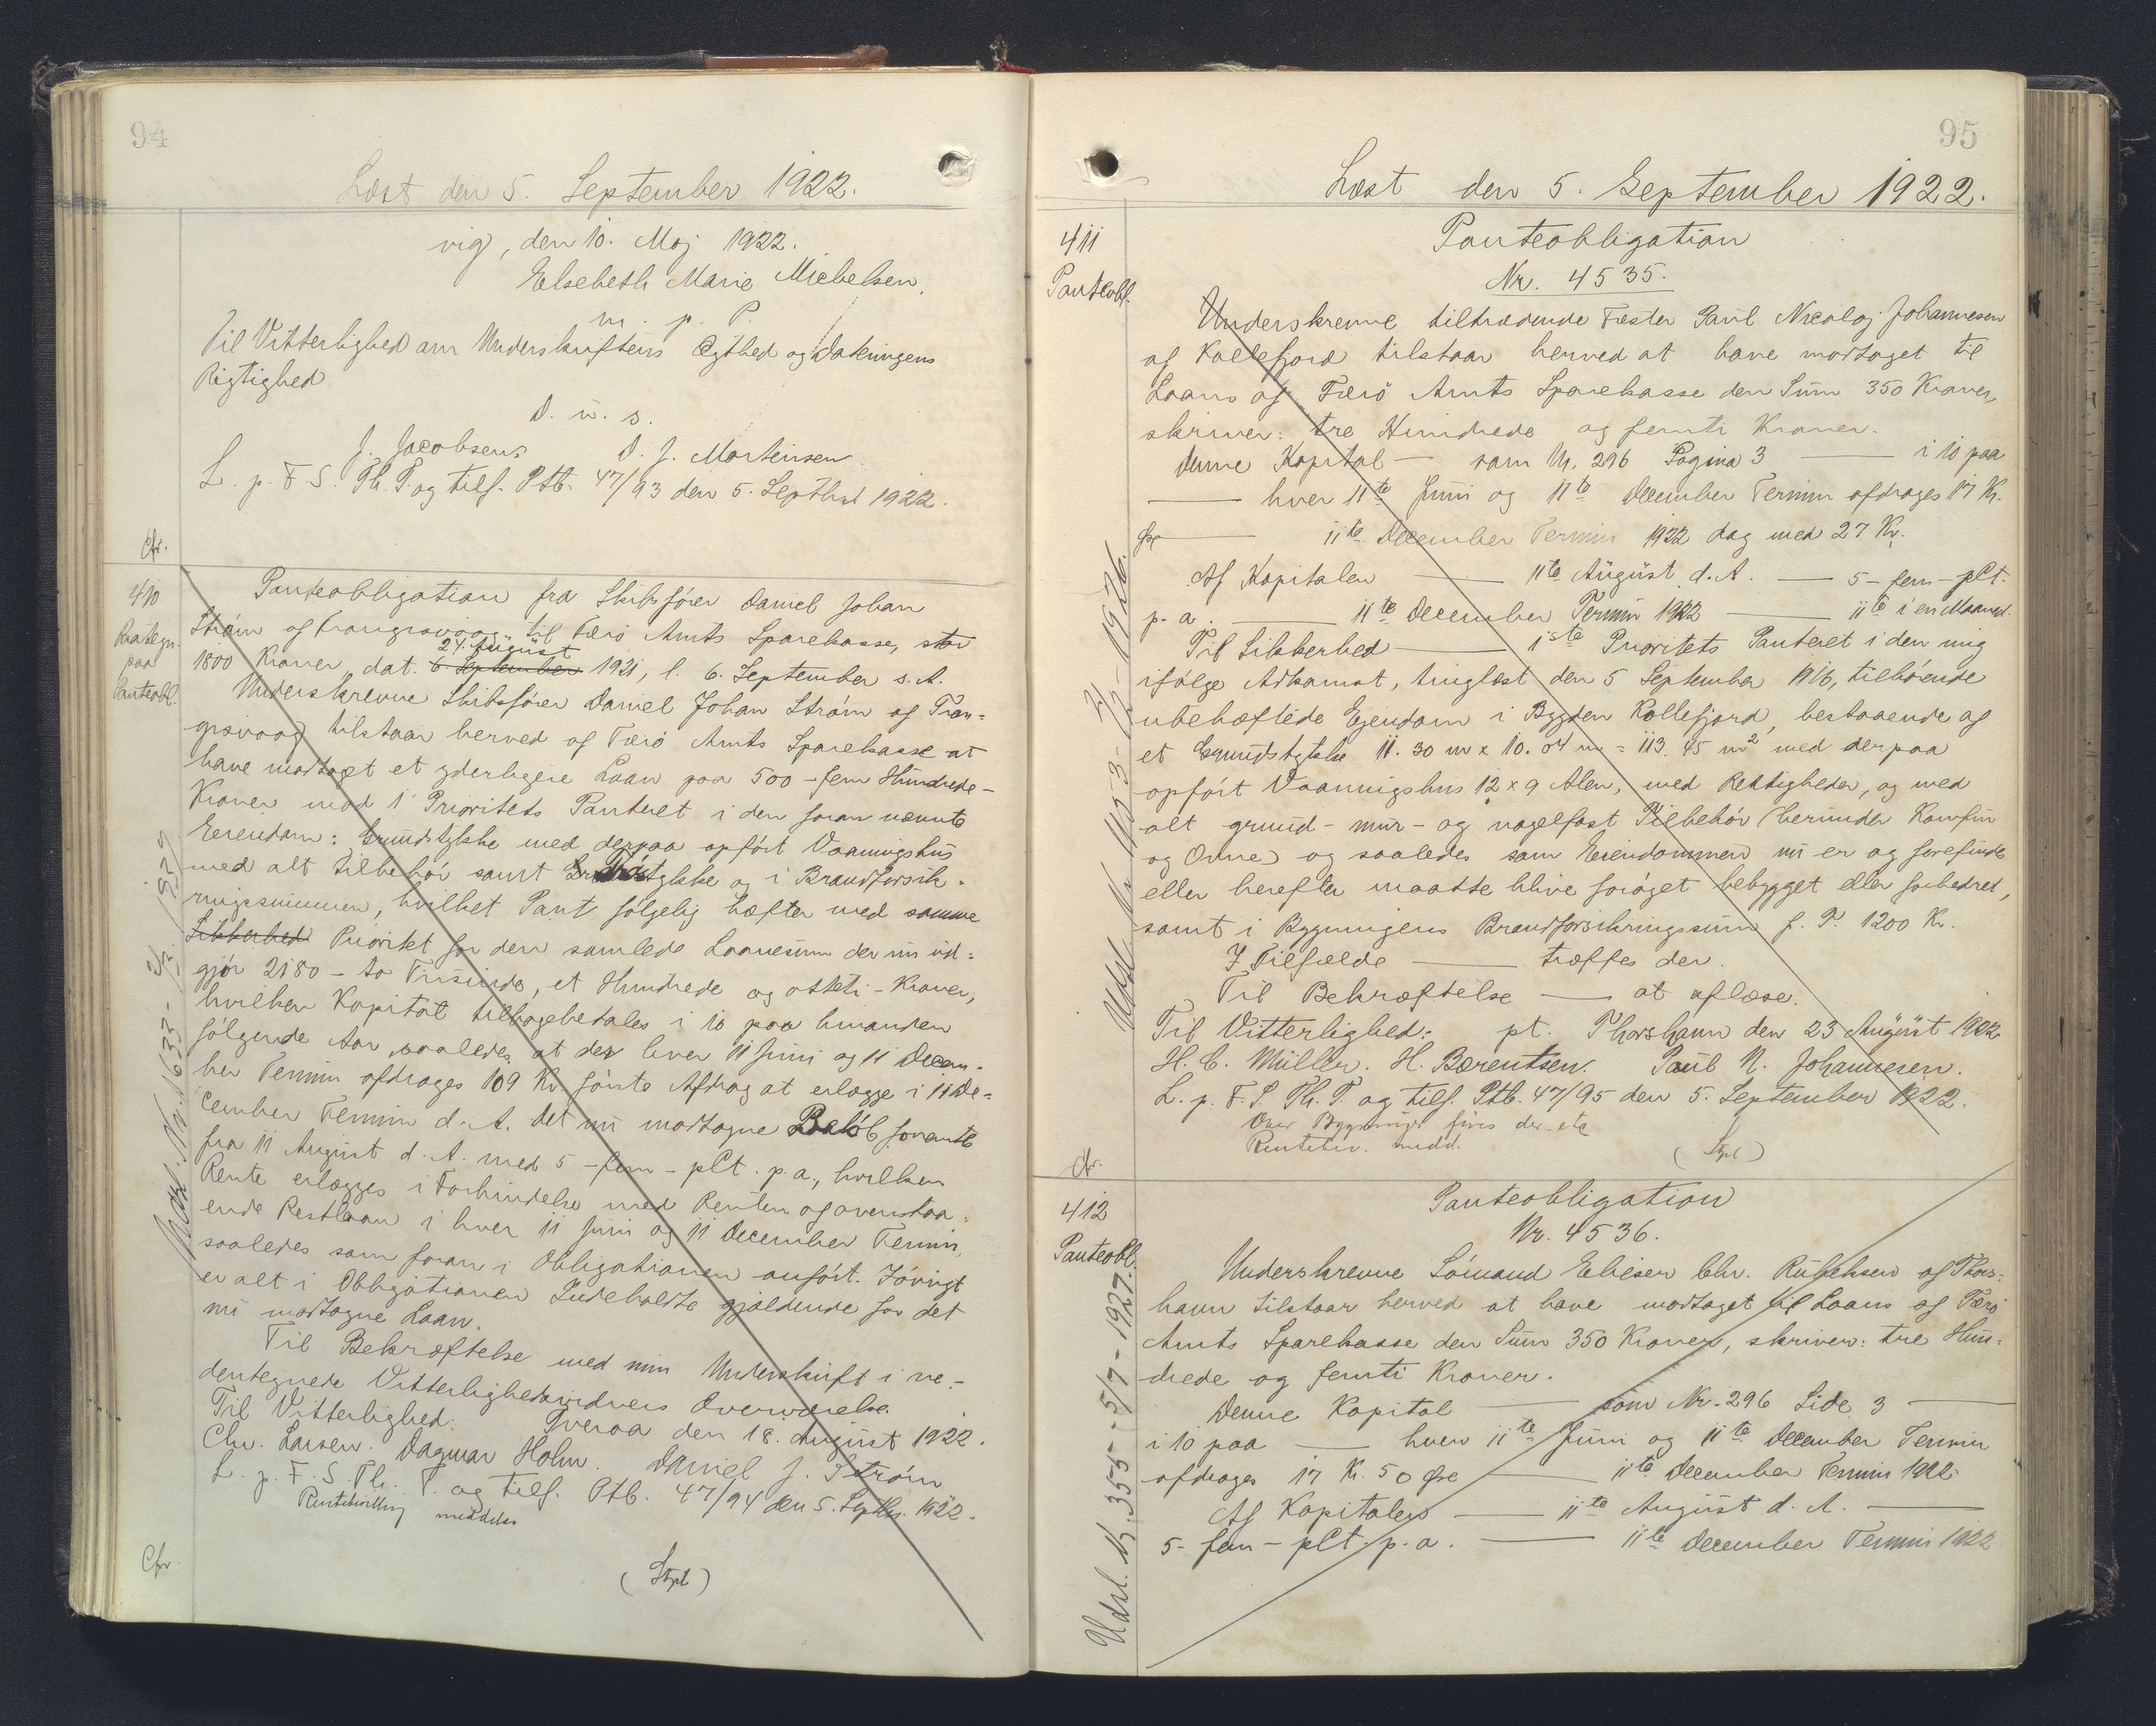 94
Læst den 5. September 1922.
vig, den 10. Maj 1922.
Elsebeth Marie Michelsen.
m. p. P.
Til Vitterlighed om Underskriftens Ægthed og Dateringens
Rigtighed
D. u. s.
J. Jacobsens D. J. Mortensen
L. p. F. S. Th. T. og tilf. Ptb. 47/93 den 5. Septbr 1922.
Cfr.
410
Paategn.
paa
Panteobl.
Panteobligation fra Skibsfører Daniel Johan
Strøm af Trangisvaag til Færø Amts Sparekasse, stor
24. August
1800 Kroner, dat. 6 September 1921, l. 6. September s. A.
Underskrevne Skibsfører Daniel Johan Strøm af Tran=
gisvaag tilstaar herved af Færø Amts Sparekasse at
have modtaget et yderligere Laan paa 500 - fem Hundrede -
Kroner mod 1' Prioritets Panteret i den foran nævnte
Eiendom: Grundstykke med derpaa opført Vaaningshus
med alt Tilbehør samt Trøstykke og i Brandforsik=
ringssummen, hvilket Pant følgelig hæfter med samme
Sikkerhed Prioritet for den samlede Laanesum der nu ud=
gjør 2180 - to Tusinde, et Hundrede og otteti - Kroner,
hvilken Kapital tilbagebetales i 10 paa hinanden
følgende Aar, saaledes, at der hver 11 Juni og 11 Decem=
ber Termin afdrages 109 Kr. første Afdrag at erlægge i 11 De=
cember Termin d. A. Det nu modtagne Beløb forrente
fra 11 August d. A. med 5 - fem - pCt. p. a., hvilken
Rente erlægges i Forbindelse med Renten af ovenstaa=
ende Restlaan i hver 11 Juni og 11 December Termin,
saaledes som foran i Obligationen anført. Iøvrigt
er alt i Obligationen Indeholdte gjældende for det
nu modtagne Laan.
Til Bekræftelse med min Underskrift i ne=
dentegnede Vitterlighedsvidners Overværelse.
Til Vitterlighed. Tveraa den 18. August 1922.
Chr. Larsen. Dagmar Holm. Daniel J. Strøm
L. p. F. S. Th. T. og tilf. Ptb. 47/94 den 5. Septbr. 1922.
Rentebevilling meddeles
Cfr.
(Stpl)
Udsl. Nr. 1633-
95
Læst den 5. September 1922.
411
Panteobl.
Panteobligation
Nr. 4535.
Underskrevne tiltrædende Fæster Paul Nicolaj Johannesen
af Kollefjord tilstaar herved at have modtaget til
Laans af Færø Amts Sparekasse den Sum 350 Kroner,
skriver: tre Hundrede og femti Kroner.
Denne Kapital — som Nr. 296 Pagina 3 — i 10 paa
— hver 11te Juni og 11te December Termin afdrages 17 Kr.
Øre — 11te December Termin 1922 dog med 27 Kr.
Af Kapitalen — 11te August d. A. — 5 - fem - pCt.
p. a. — 11te December Termin 1922 — 11te i en Maaned.
Til Sikkerhed — 1ste Prioritets Panteret i den mig
ifølge Adkomst, tinglæst den 5 September 1916, tilhørende
ubehæftede Ejendom i Bygden Kollefjord, bestaaende af
et Grundstykke 11.30 m x 10.04 m = 113.45 m² med derpaa
opført Vaaningshus 12 x 9 Alen, med Rettigheder, og med
alt grund- mur- og nagelfast Tilbehør (herunder Komfur
og Ovne) og saaledes som Eiendommen nu er og forefindes
eller herefter maatte blive forøget bebygget eller forbedret,
samt i Bygningens Brandforsikringssum f. T. 1200 Kr.
I Tilfælde — træffes der.
Til Bekræftelse — at aflæse.
Til Vitterlighed: pt. Thorshavn den 23 August 1922
H. C. Müller. H. Bærentsen. Paul N. Johannesen.
L. p. F. S Th. T. og tilf. Ptb. 47/95 den 5. September 1922.
Over Bygninger fines der etc
Rentebev. medd.
(Stpl)
Cfr.
Udsl. Nr.
1926.
412
Panteobl.
Panteobligation
Nr. 4536.
Underskrevne Sømand Elieser Chr. Rubeksen af Thors=
havn tilstaar herved at have modtaget til Laans af Færø
Amts Sparekasse den Sum 350 Kroner, skriver: tre Hun=
drede og femti Kroner.
Denne Kapital — som Nr. 296 Side 3 —
i 10 paa — hver 11te Juni og 11te December Termin
afdrages 17 Kr. 50 Øre — 11te December Termin 1922
Af Kapitalen — 11te August d. A. —
5 - fem - pCt. p. a. — 11te December Termin 1922
Udsl. Nr. 355 - 5/7 - 1927.